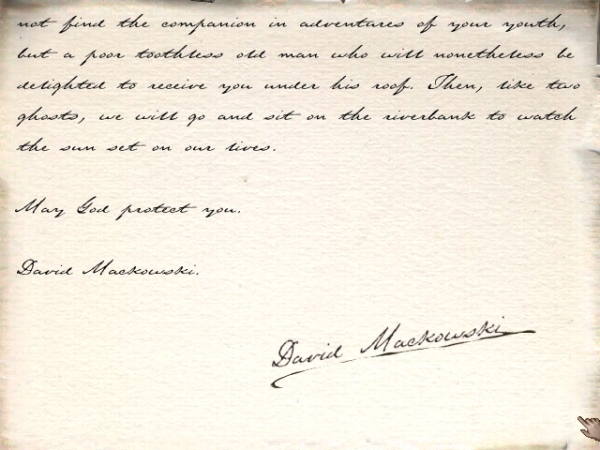 not find the companion in adventures of your youth,
but a poor toothless old man who will nonetheless be
delighted to receive you under his roof. Then, like two
ghosts, we will go and sit on the riverbank to watch
the sun set on our lives.
May God protect you.
David Mackowski.
David Mackowski